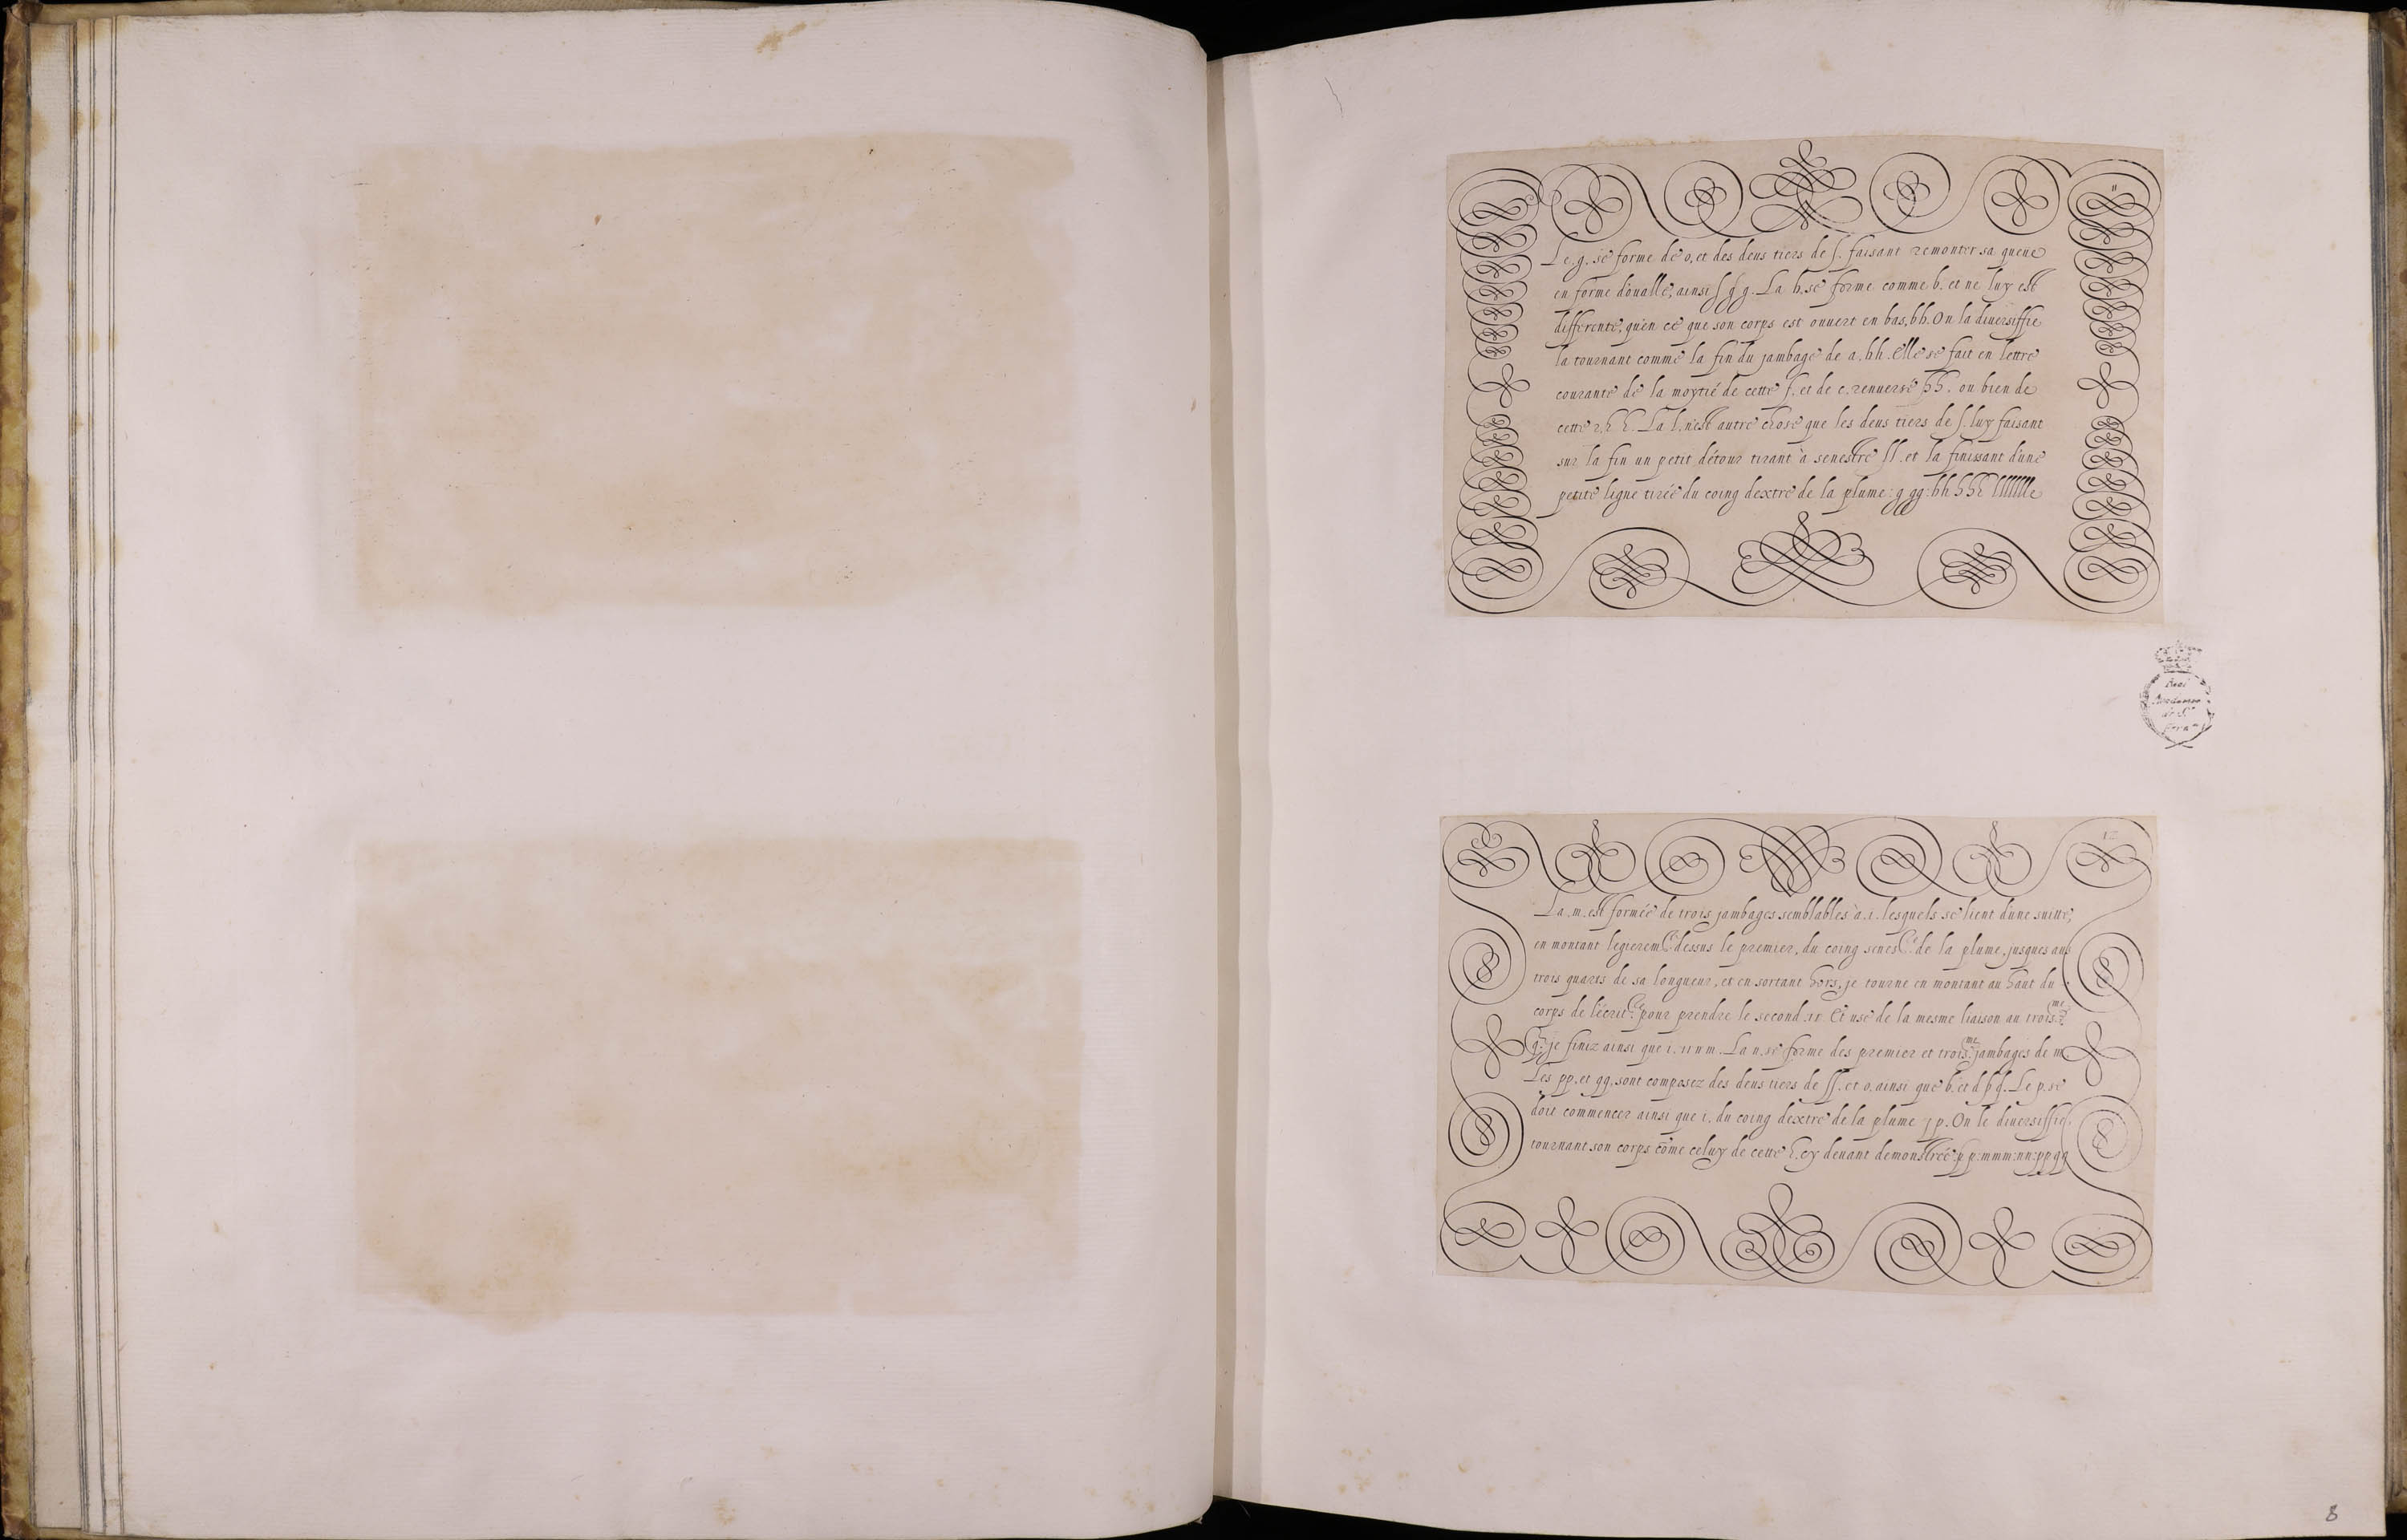 11
Le .g. se forme de o, et des deus tiers de ſ. faisant remonter sa queue
en forme d'oualle, ainsi ſ ɡ g. La h. se forme comme b. et ne luy est
differente, qu'en ce que son corps est ouuert en bas, b h. On la diuersiffie
la tournant comme la fin du jambage de a. h h. Elle se fait en lettre
courante de la moytié de cette ſ. et de c. renuersé h h. ou bien de
cette 2. h h. La l. n'est autre chose que les deus tiers de ſ. luy faisant
sur la fin un petit détour tirant à senestre ſ l. et la finissant d'une
petite ligne tirée du coing dextre de la plume: g gg: h h h h h lllllll
Real
Academia
de Sn
Fern
12
La .m. est formée de trois jambages semblables à .i. lesquels se lient d'une suitte,
en montant legierem.t dessus le premier, du coing senes.tre de la plume, jusques aus
trois quarts de sa longueur, et en sortant hors, je tourne en montant au haut du
corps de l'écrit.re pour prendre le second .ıı. Et use de la mesme liaison au trois.me
q. je finiz ainsi que i. ıı n m. La n. se forme des premier et trois.me jambages de m.
Les pp. et qq. sont composez des deus tiers de ſſ. et o. ainsi que b. et d þ q. Le p. se
doit commencer ainsi que i. du coing dextre de la plume ȷ p. On le diuersiffie
tournant son corps cōme celuy de cette h. cy deuant demonstrée: p p: mmm: nn: pp qq
8